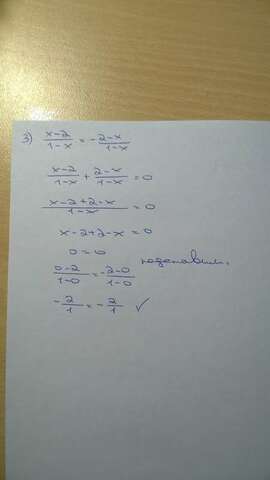 3) (x-2)/(1-x) = -(2-x)/(1-x)
(x-2)/(1-x) + (2-x)/(1-x) = 0
(x-2+2-x)/(1-x) = 0
x-2+2-x=0
0=0
(0-2)/(1-0) = -(2-0)/(1-0) подставим:
-2/1 = -2/1 ✓